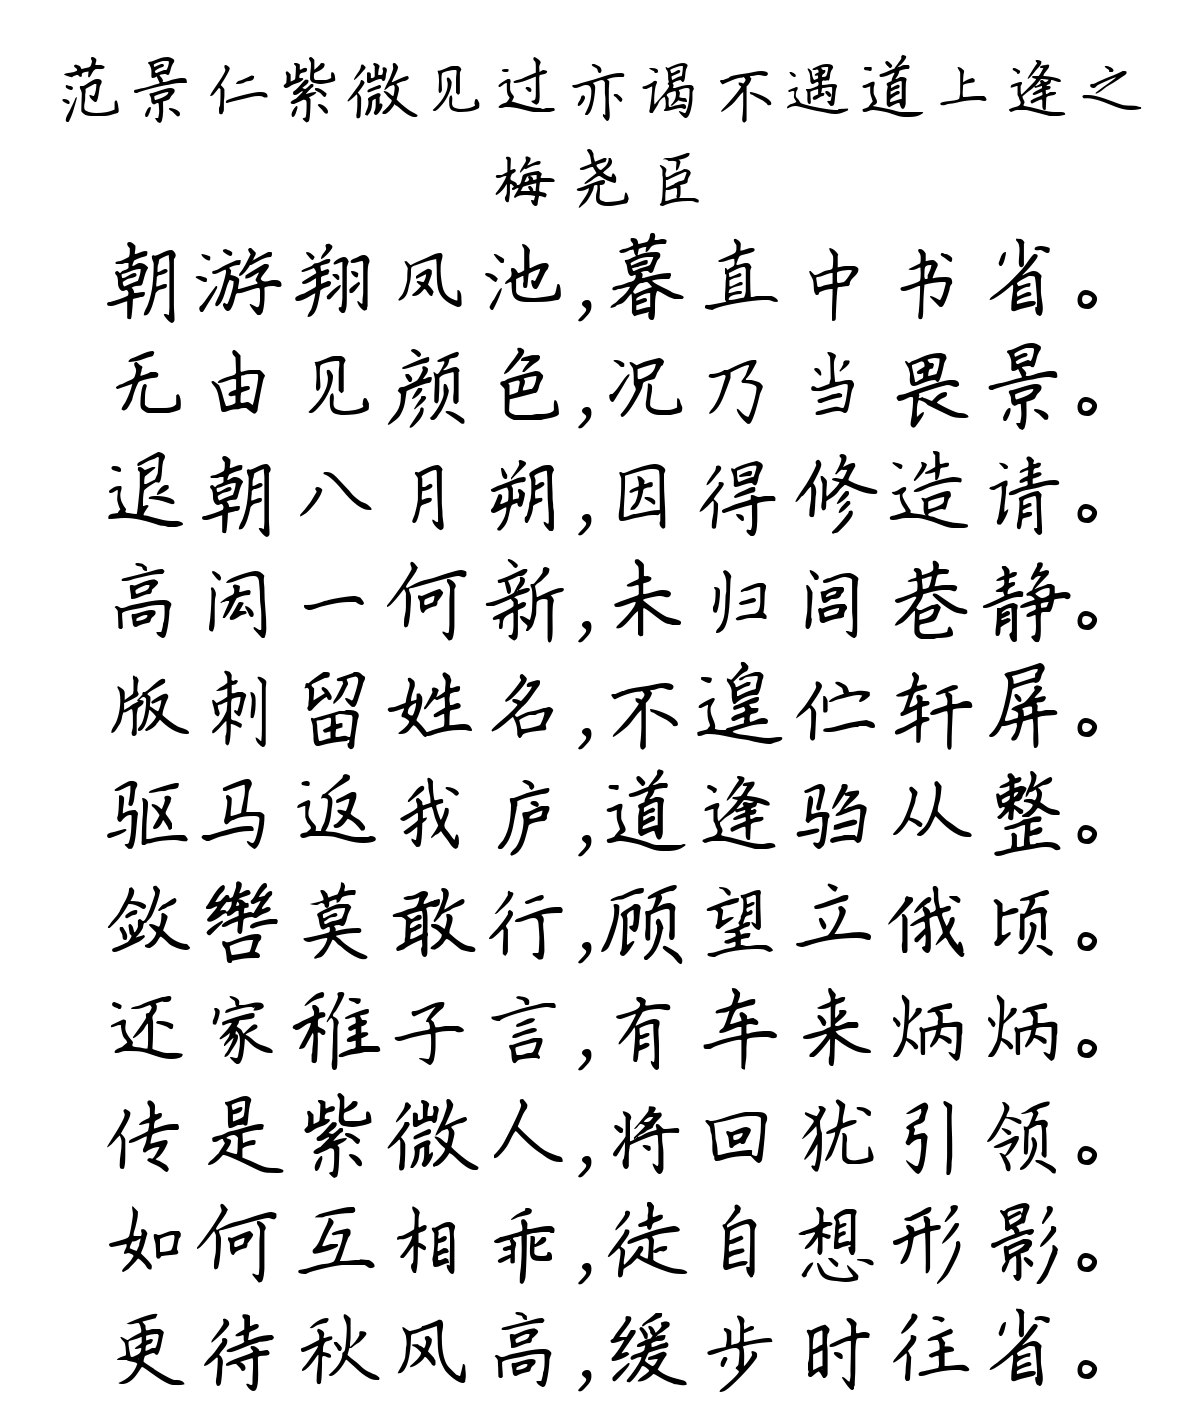 范景仁紫微见过亦谒不遇道上逢之
梅尧臣
朝游翔凤池,暮直中书省。
无由见颜色,况乃当畏景。
退朝八月朔,因得修造请。
高闳一何新,未归闾巷静。
版刺留姓名,不遑伫轩屏。
驱马返我庐,道逢驺从整。
敛辔莫敢行,顾望立俄顷。
还家稚子言,有车来炳炳。
传是紫微人,将回犹引领。
如何互相乖,徒自想形影。
更待秋风高,缓步时往省。